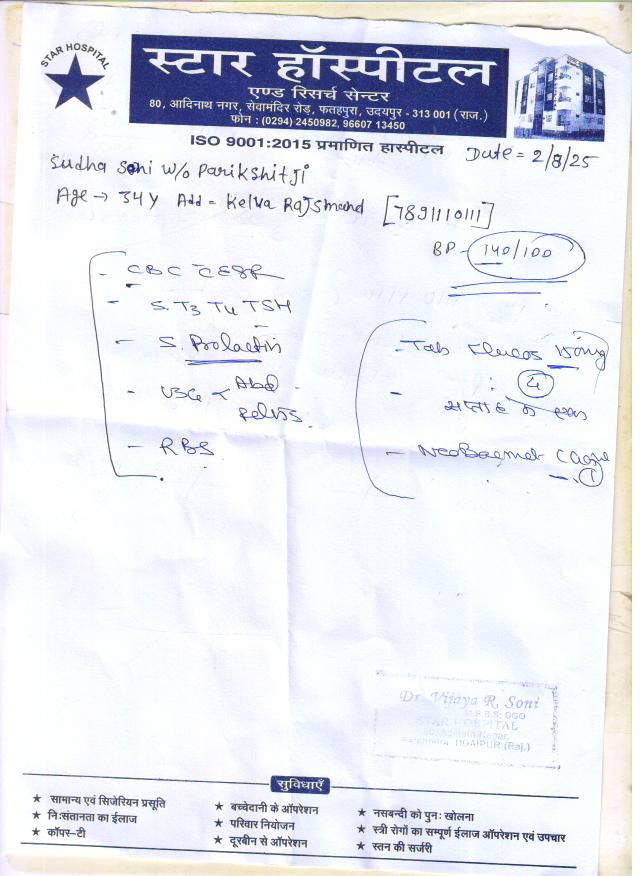 STAR HOSPITAL
स्टार हॉस्पीटल
एण्ड रिसर्च सेन्टर
80, आदिनाथ नगर, सेवामंदिर रोड़, फतहपुरा, उदयपुर - 313 001 (राज.)
फोन : (0294) 2450982, 96607 13450
ISO 9001:2015 प्रमाणित हास्पीटल
Date = 2/8/25
Sudha Soni W/o Parikshit Ji
Age → 34 Y Add = Kelva Rajsmand [7891110111]
BP - 140/100
- CBC ESR
- S. T3 T4 TSH
- S. Prolactin
- USG Abd
Pelvis
- RBS
- Tab 150mg
4
सप्ताह में एक
1
Dr. Vijaya R. Soni
M.B.B.S; DGO
STAR HOSPITAL
UDAIPUR (Raj.)
सुविधाएँ
★ सामान्य एवं सिजेरियन प्रसूति
★ नि:संतानता का ईलाज
★ कॉपर-टी
★ बच्चेदानी के ऑपरेशन
★ परिवार नियोजन
★ दूरबीन से ऑपरेशन
★ नसबन्दी को पुन: खोलना
★ स्त्री रोगों का सम्पूर्ण ईलाज ऑपरेशन एवं उपचार
★ स्तन की सर्जरी